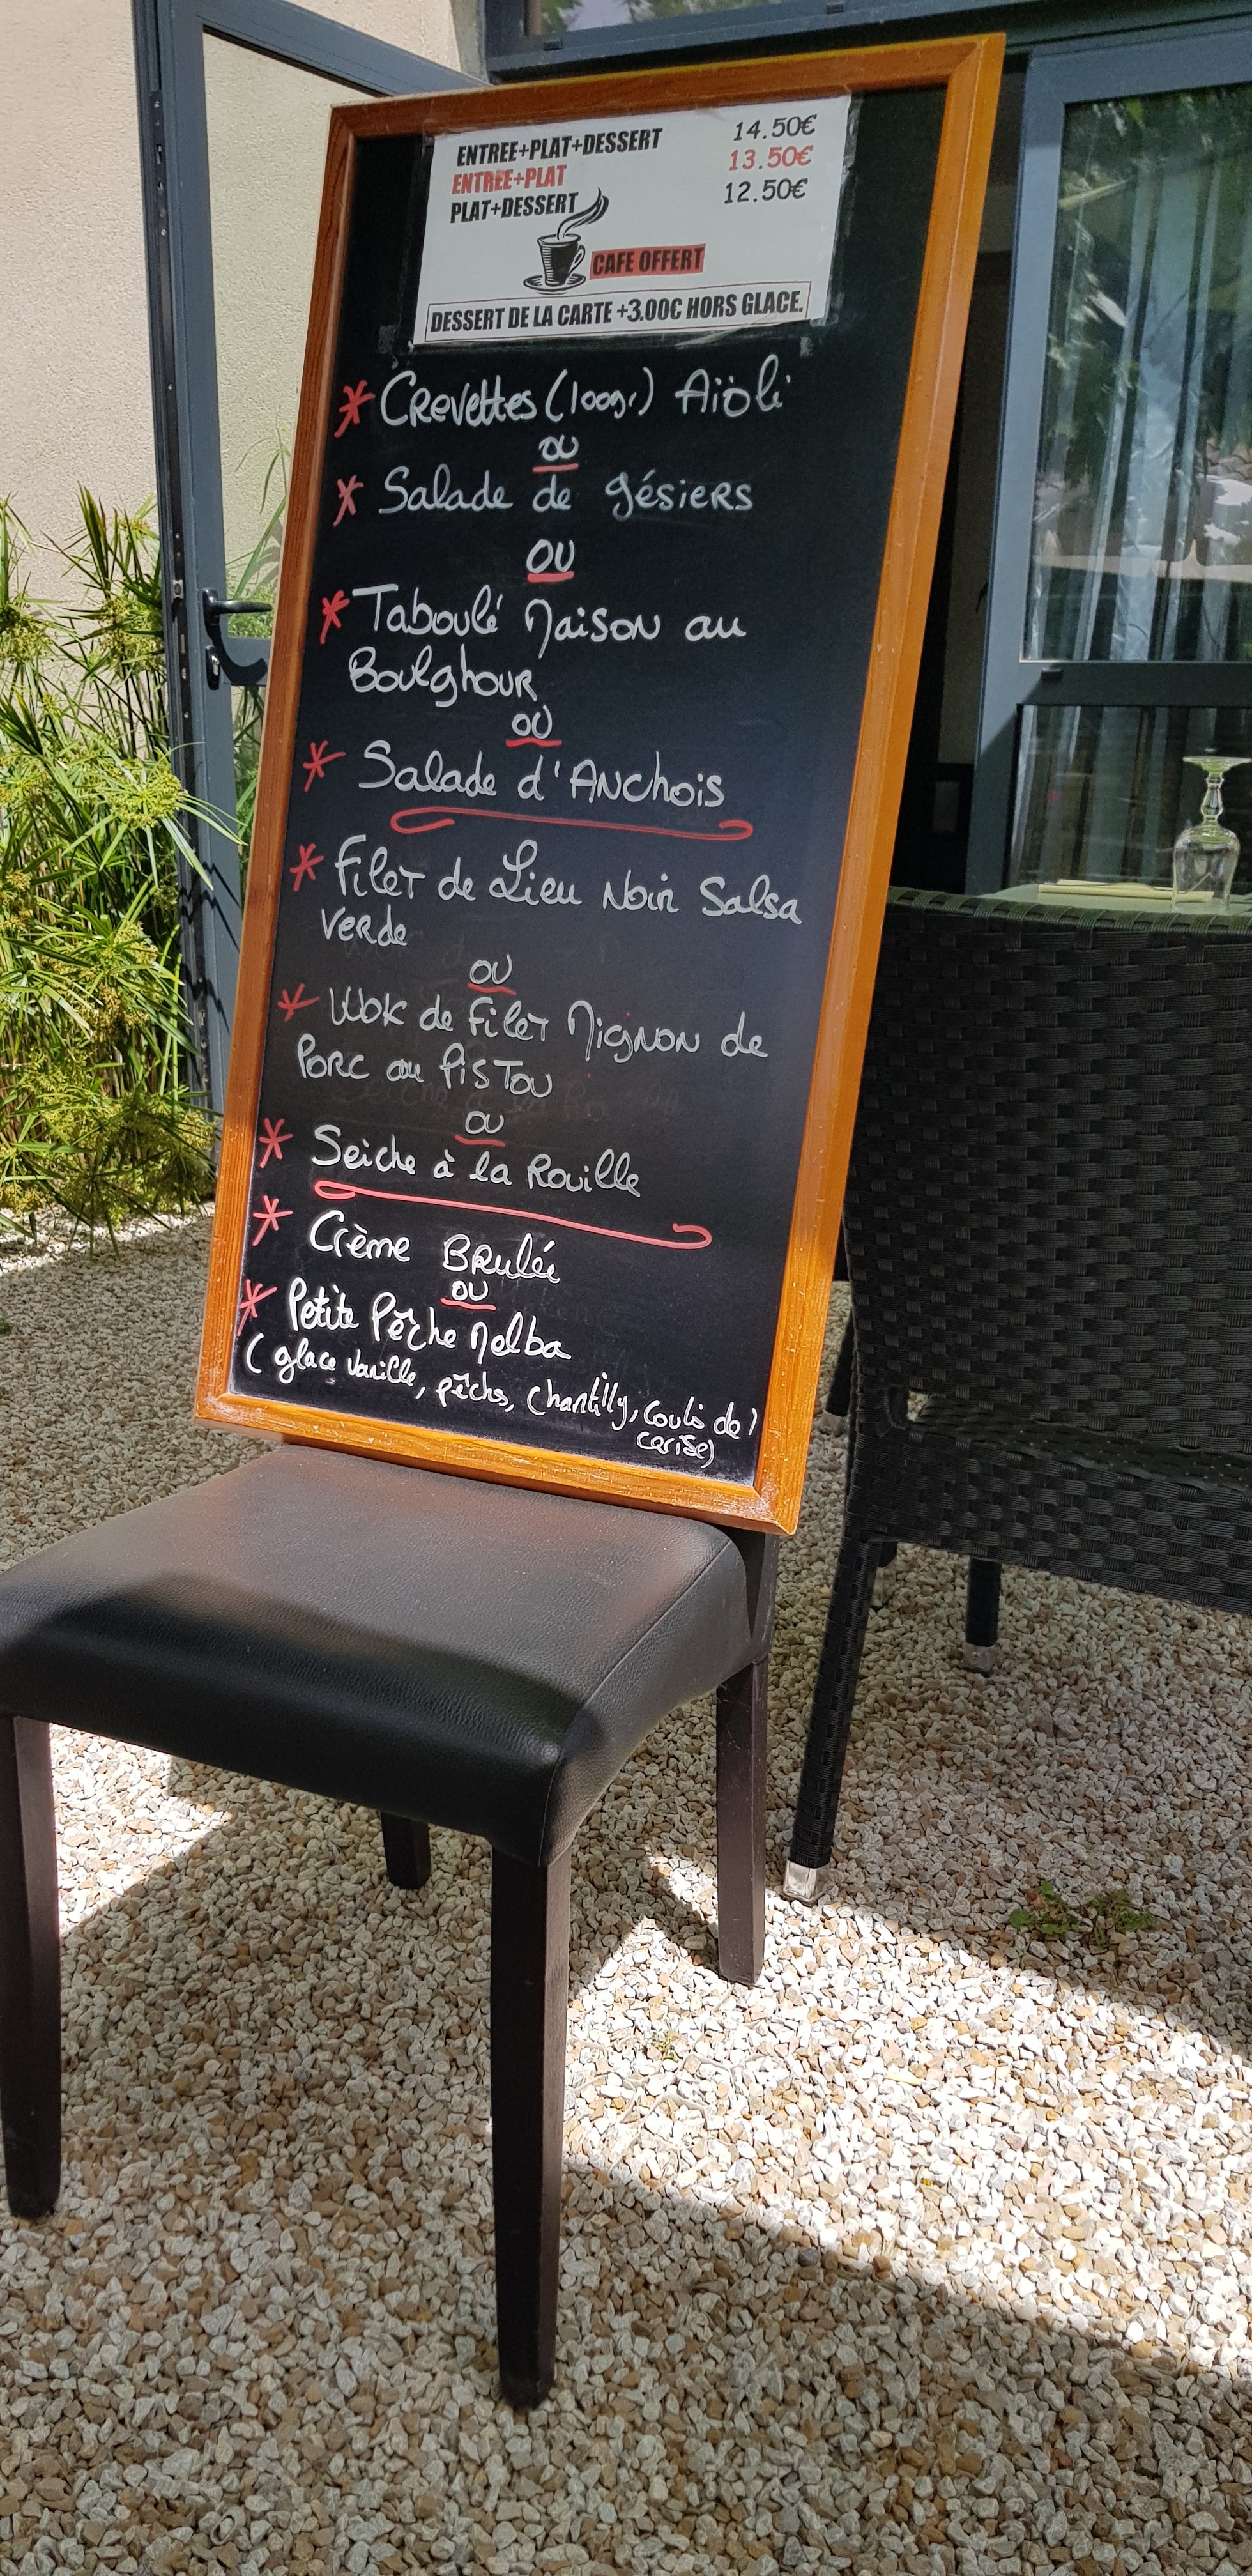 ENTREE+PLAT+DESSERT 14.50€
ENTREE+PLAT 13.50€
PLAT+DESSERT 12.50€
CAFE OFFERT
DESSERT DE LA CARTE +3.00€ HORS GLACE.
* Crevettes (100gr) Aïoli
ou
* Salade de gésiers
ou
* Taboulé Maison au
Boulghour
ou
* Salade d'Anchois
* Filet de Lieu Noir Salsa
verde
ou
* Wok de Filet Mignon de
Porc au Pistou
ou
* Seiche à la Rouille
* Crème Brulée
ou
* Petite Pêche Melba
( glace vanille, pêches, chantilly, coulis de
cerise)